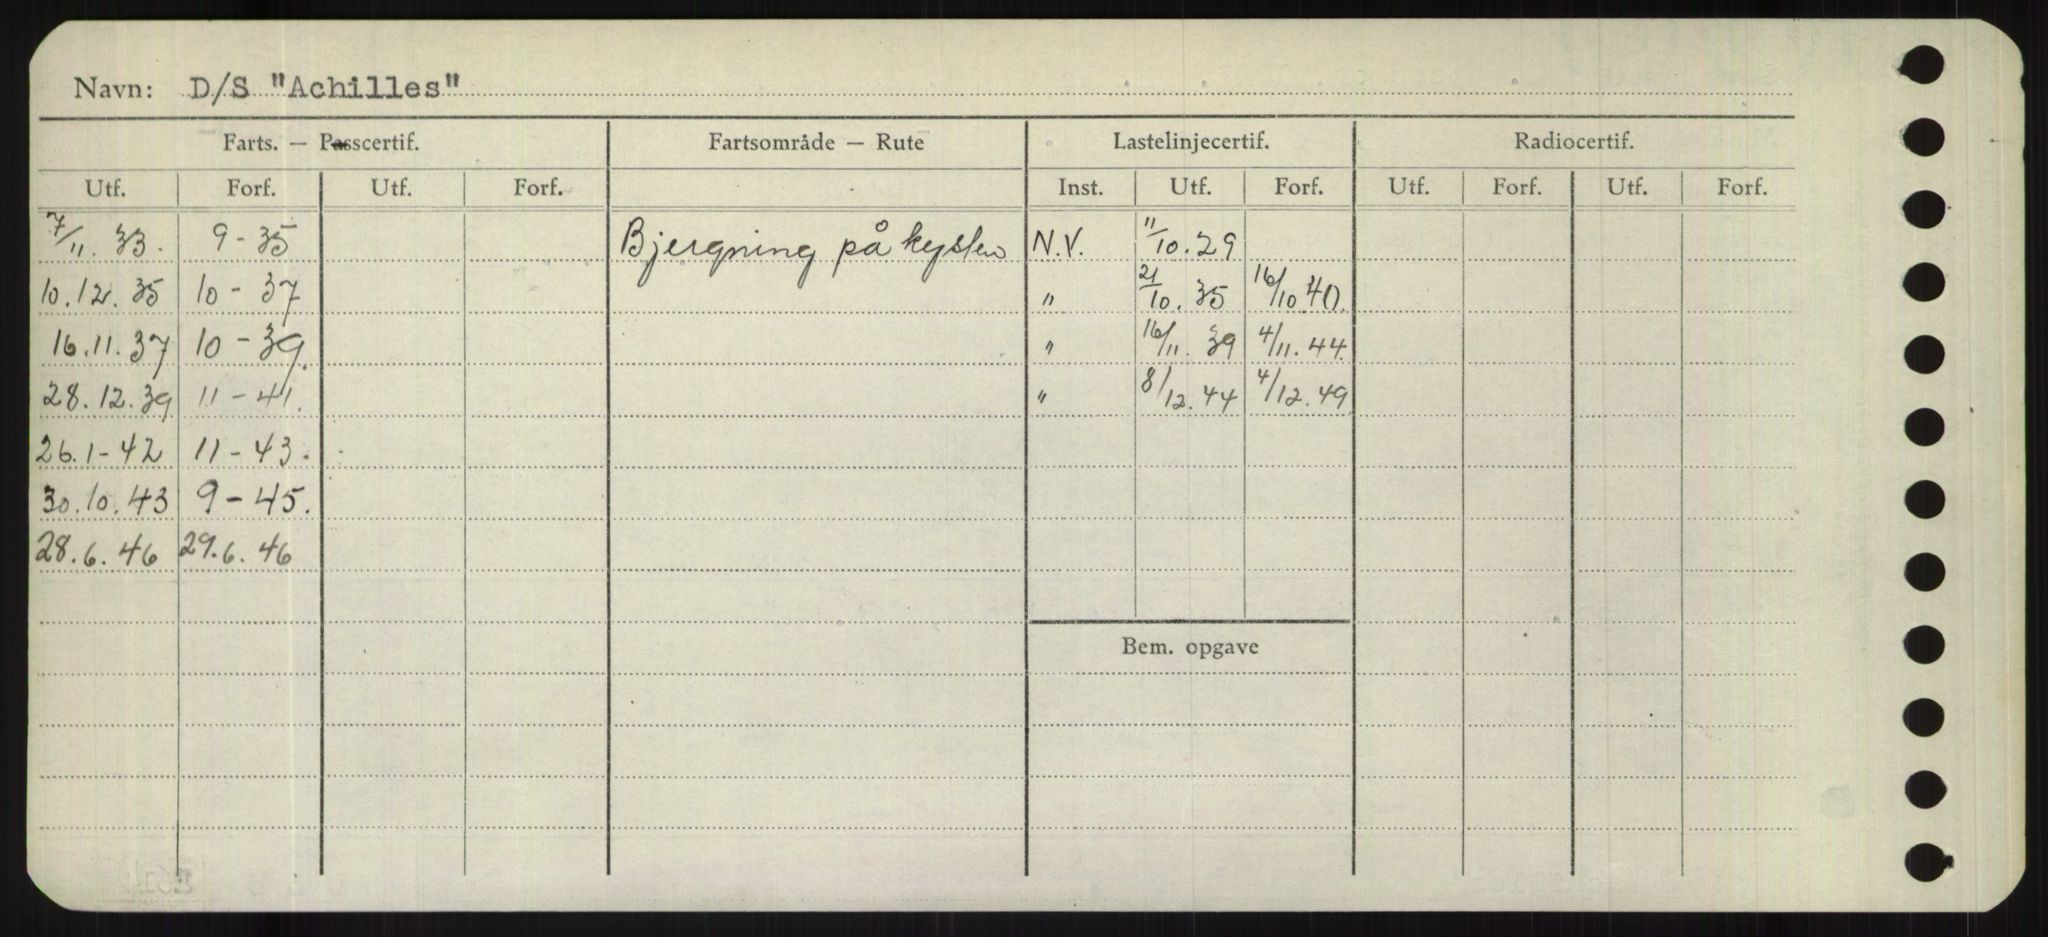 Navn: D/S "Achilles"
Farts. — Passcertif. Fartsområde — Rute Lastelinjecertif. Radiocertif.
Utf. Forf. Utf. Forf. Inst. Utf. Forf. Utf. Forf. Utf. Forf.
7/11. 33. 9-35 Bjergning på kysten N.V. 11/10. 29
10.12.35 10-37 " 21/10. 35 16/10 40.
16.11.37 10-39. " 16/11. 39 4/11. 44
28.12.39 11-41. " 8/12. 44 4/12. 49
26.1-42 11-43.
30.10.43 9-45.
28.6.46 29.6.46
Bem. opgave